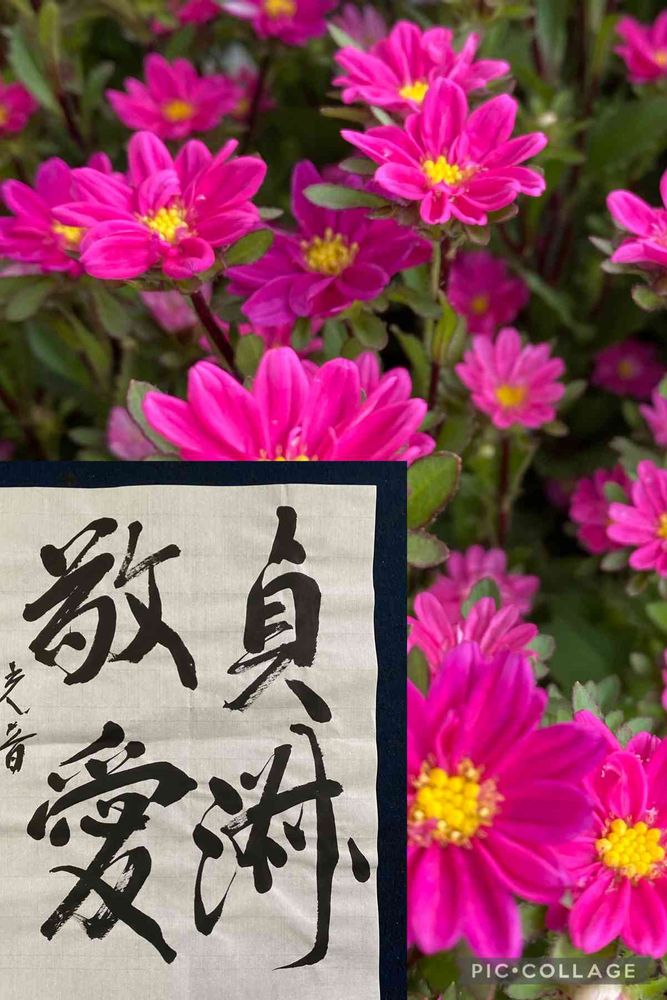 貞淑
敬愛
光音
PIC•COLLAGE